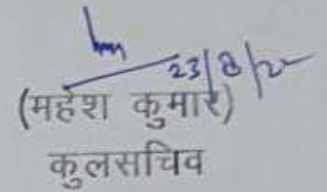 23/8/22
(महेश कुमार)
कुलसचिव